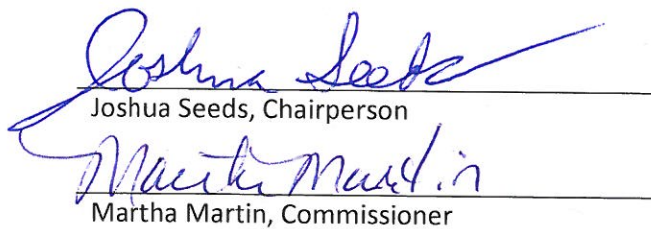 Joshua Seeds
Joshua Seeds, Chairperson
Martha Martin
Martha Martin, Commissioner